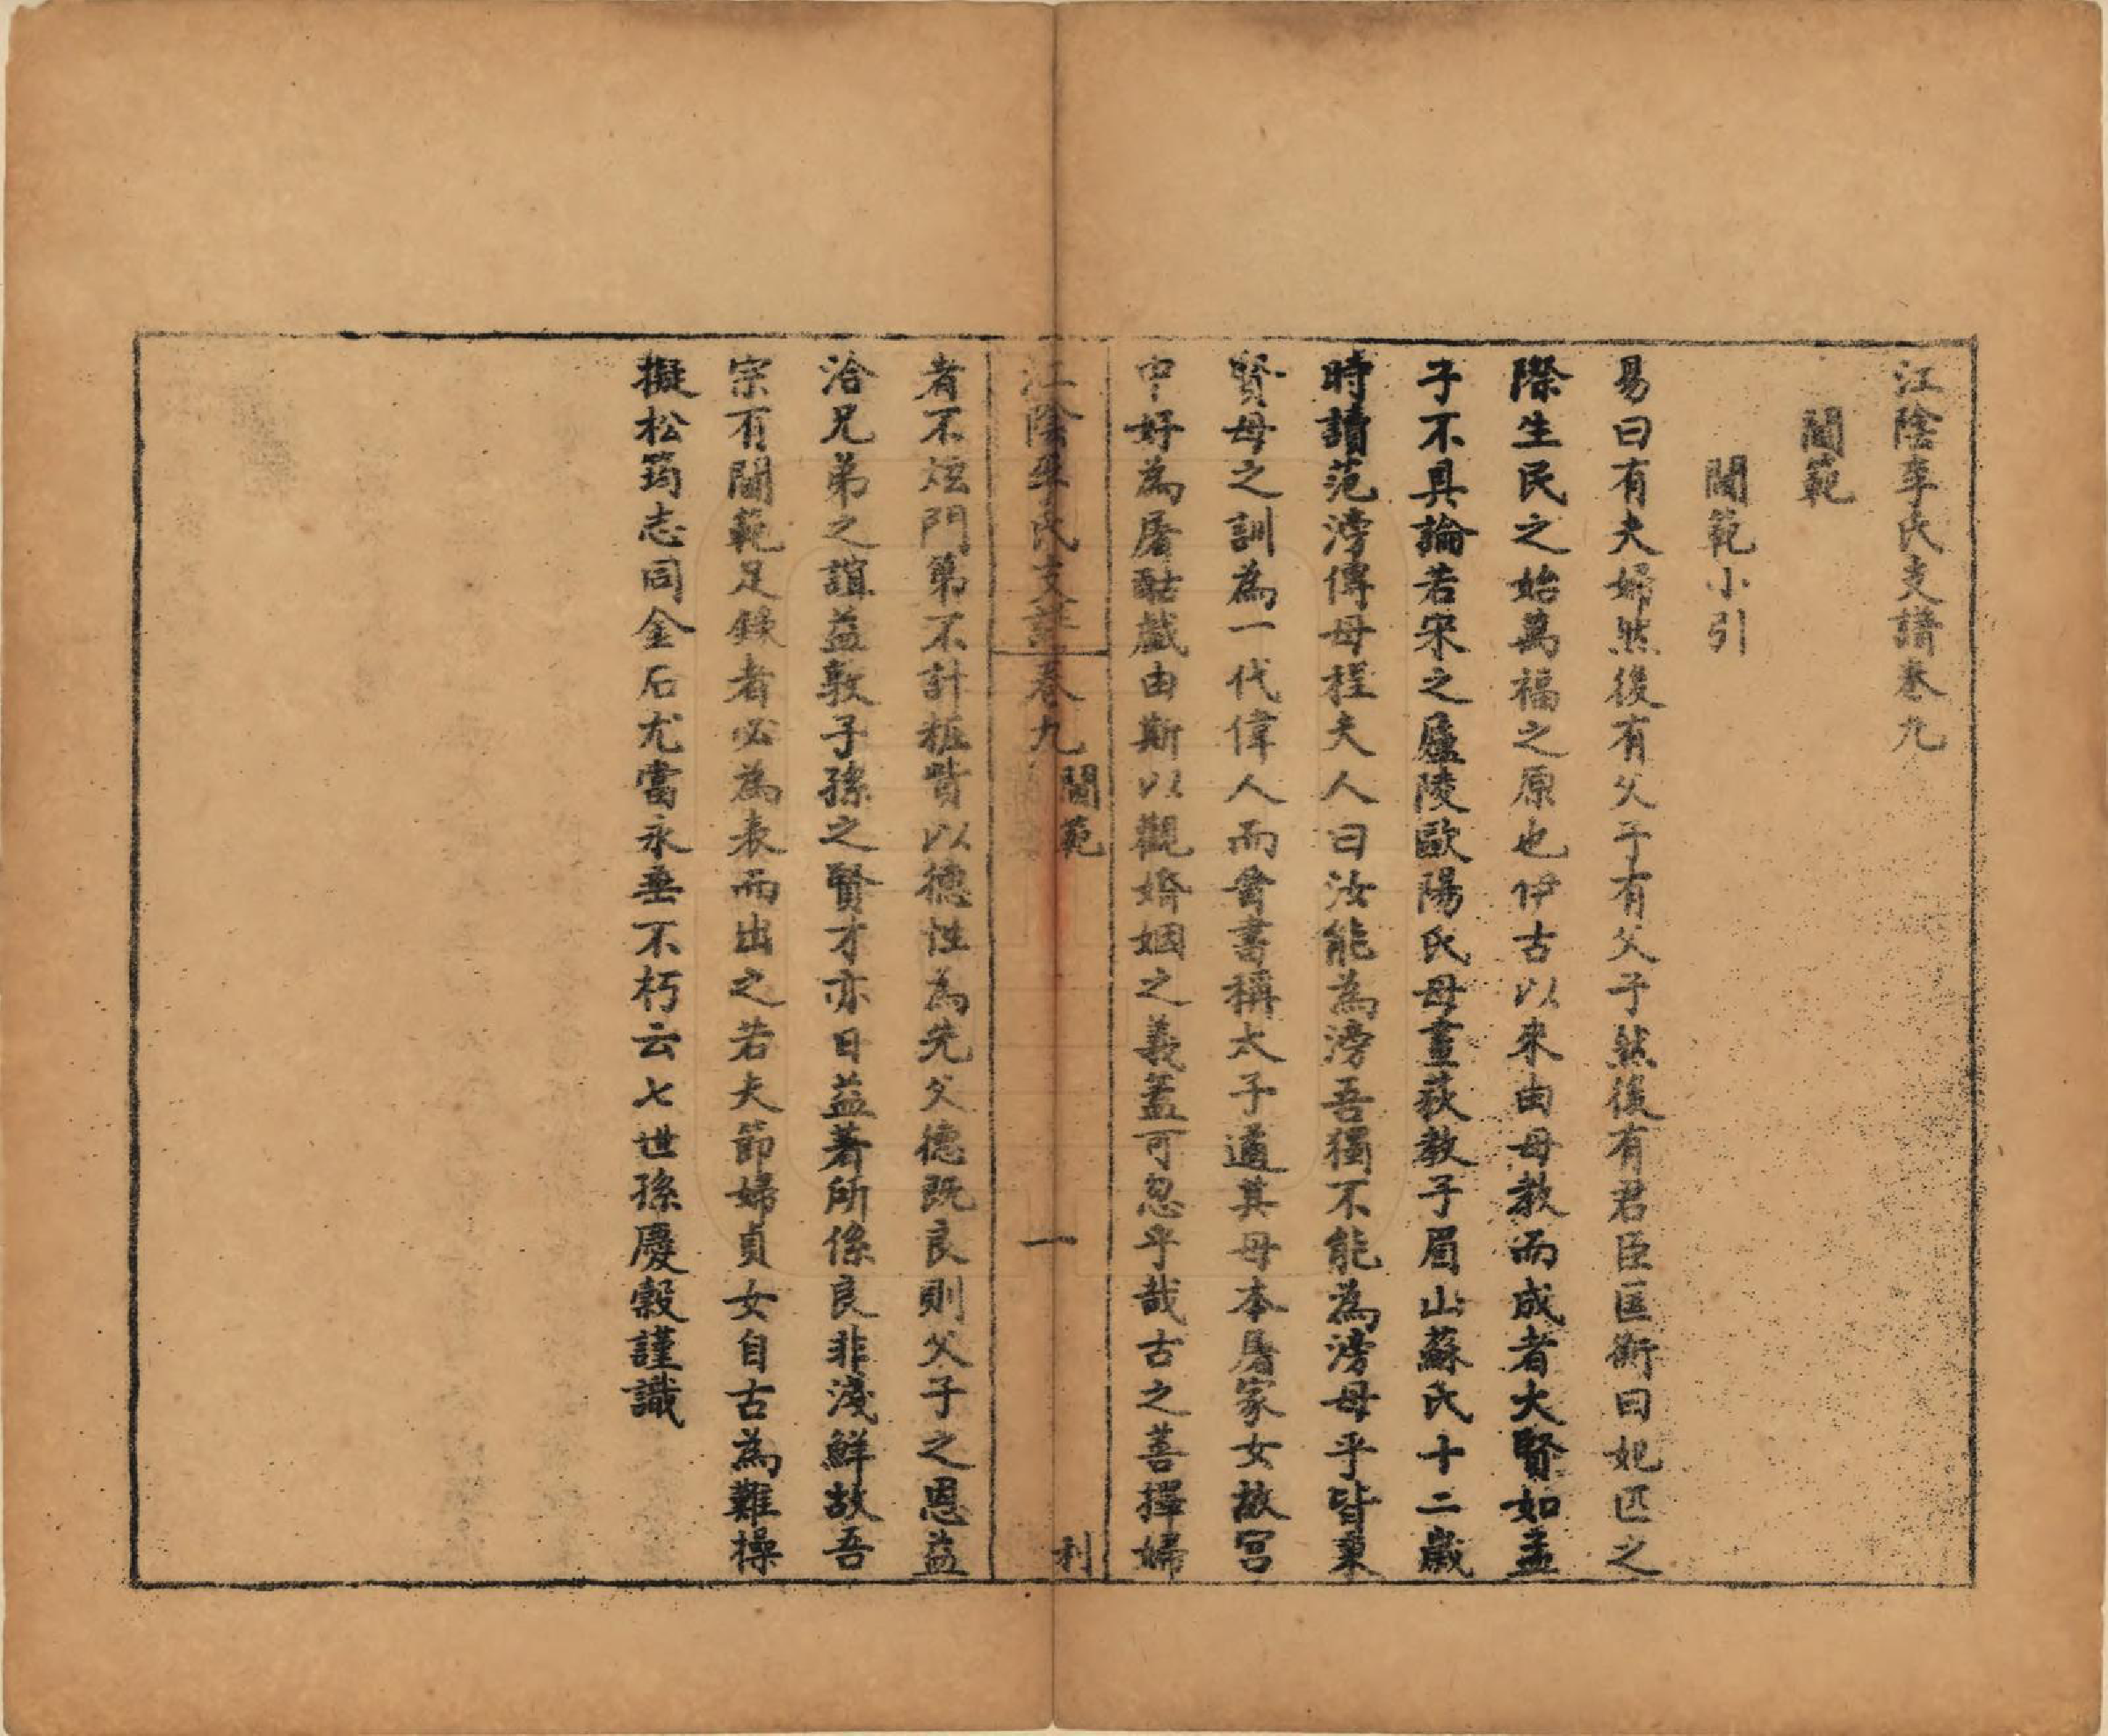 江陰李氏支譜卷九
閫範
閫範小引
易曰有夫婦然後有父子有父子然後有君臣匡衡曰妃匹之
際生民之始萬福之原也伊古以來由母教而成者大賢如孟
子不具論若宋之廬陵歐陽氏母畫荻教子眉山蘇氏十二歲
時讀范滂傳母程夫人曰汝能為滂吾獨不能為滂母乎皆秉
賢母之訓為一代偉人而晉書稱太子遹其母本屠家女故宮
中好為屠酤戲由斯以觀婚姻之義葢可忽乎哉古之善擇婦
江陰李氏支譜 卷九 閫範 一 利
者不炫門第不計粧貲以德性為先父德既良則父子之恩益
洽兄弟之誼益敦子孫之賢才亦日益著所係良非淺鮮故吾
宗有閫範足錄者必為表而出之若夫節婦貞女自古為難操
擬松筠志同金石尤當永垂不朽云七世孫慶穀謹識